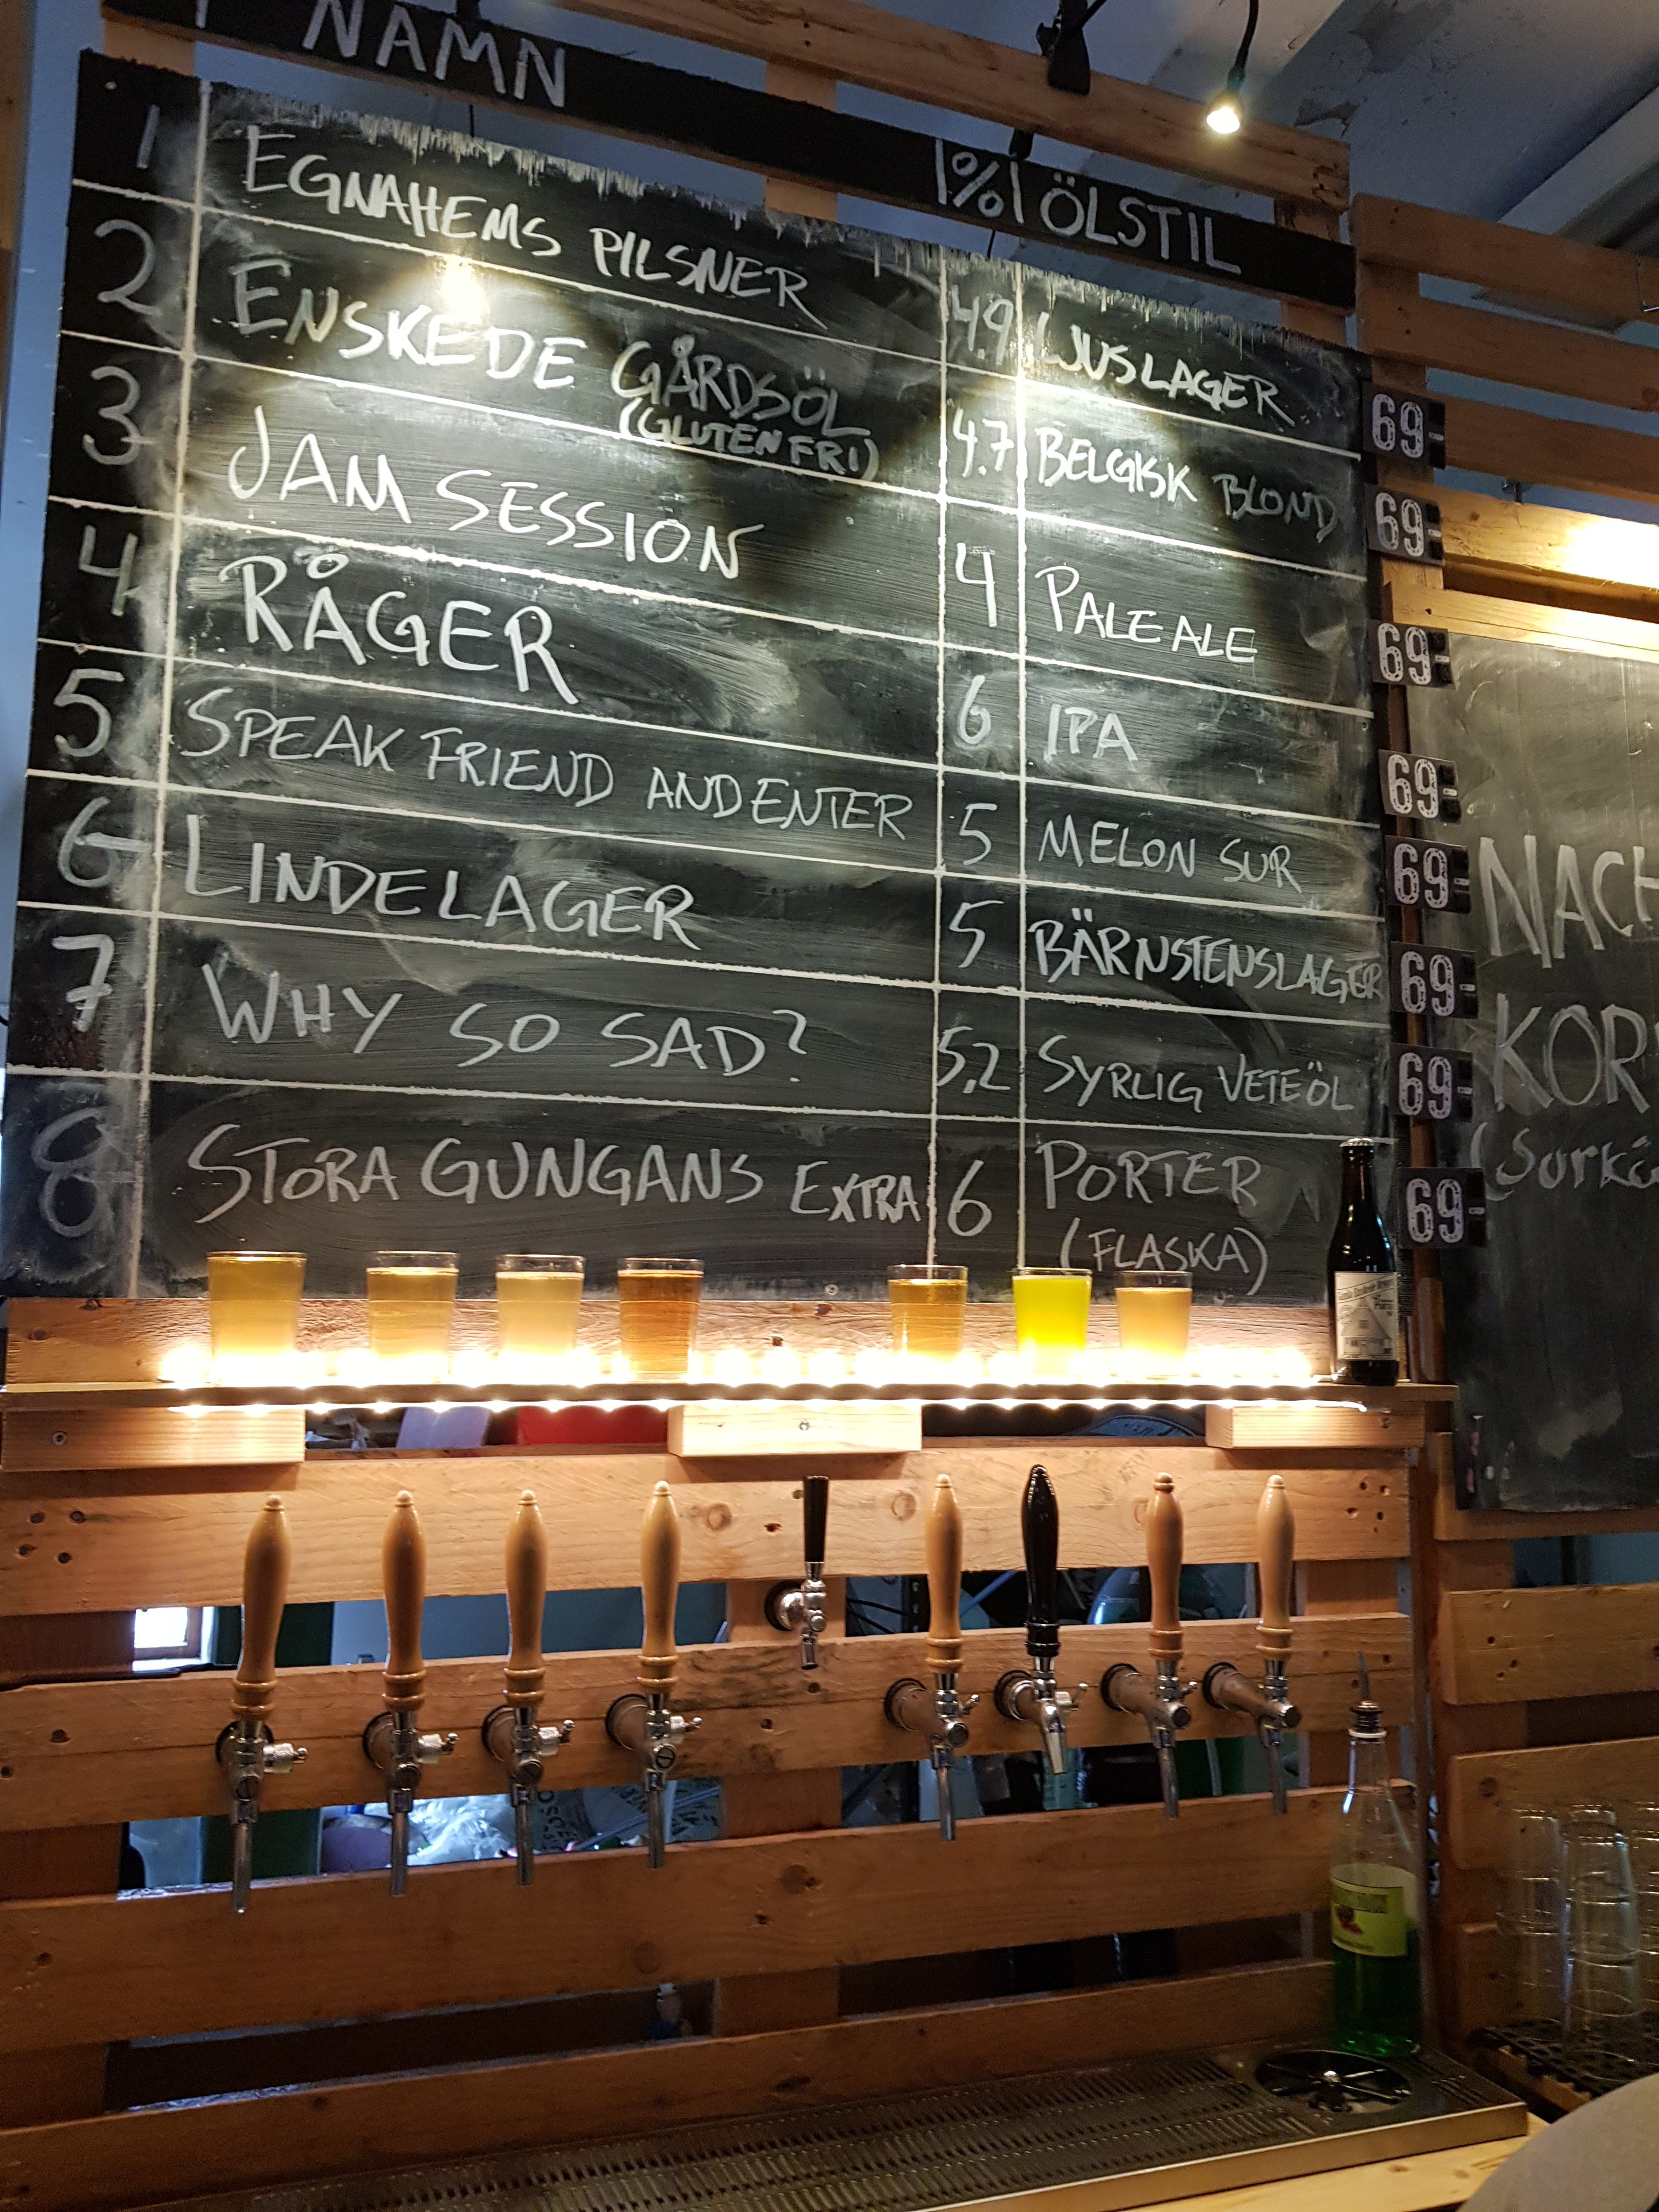 NAMN |%| ÖLSTIL
1 EGNAHEMS PILSNER 4.9 LJUSLAGER 69:-
2 ENSKEDE GÅRDSÖL 4.7 BELGISK BLOND 69:-
(GLUTENFRI)
3 JAM SESSION 4 PALE ALE 69:-
4 RÅGER 6 IPA 69:-
5 SPEAK FRIEND AND ENTER 5 MELON SUR 69:-
6 LINDELAGER 5 BÄRNSTENSLAGER 69:-
7 WHY SO SAD? 5,2 SYRLIG VETEÖL 69:-
8 STORA GUNGANS EXTRA 6 PORTER 69:-
(FLASKA)
NACH
KOR
(Surkå